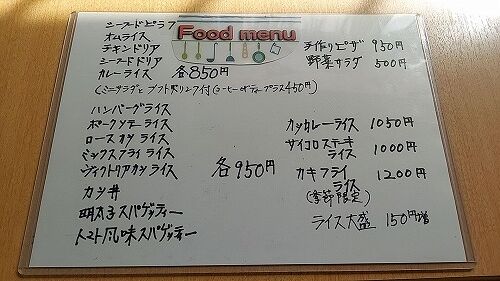 Food menu
シーフードピラフ
オムライス
チキンドリア
シーフードドリア
カレーライス 各850円
(ミニサラダとソフトドリンク付(コーヒーorティープラス450円)
手作りピザ 950円
野菜サラダ 500円
ハンバーグライス
ポークソテーライス
ロースカツライス
ミックスフライライス
ヴィクトリアカツライス
カツ丼
明太子スパゲッティー
トマト風味スパゲッティー
各950円
カツカレーライス 1050円
サイコロステーキ
ライス 1000円
カキフライ
ライス 1200円
(季節限定)
ライス大盛 150円増